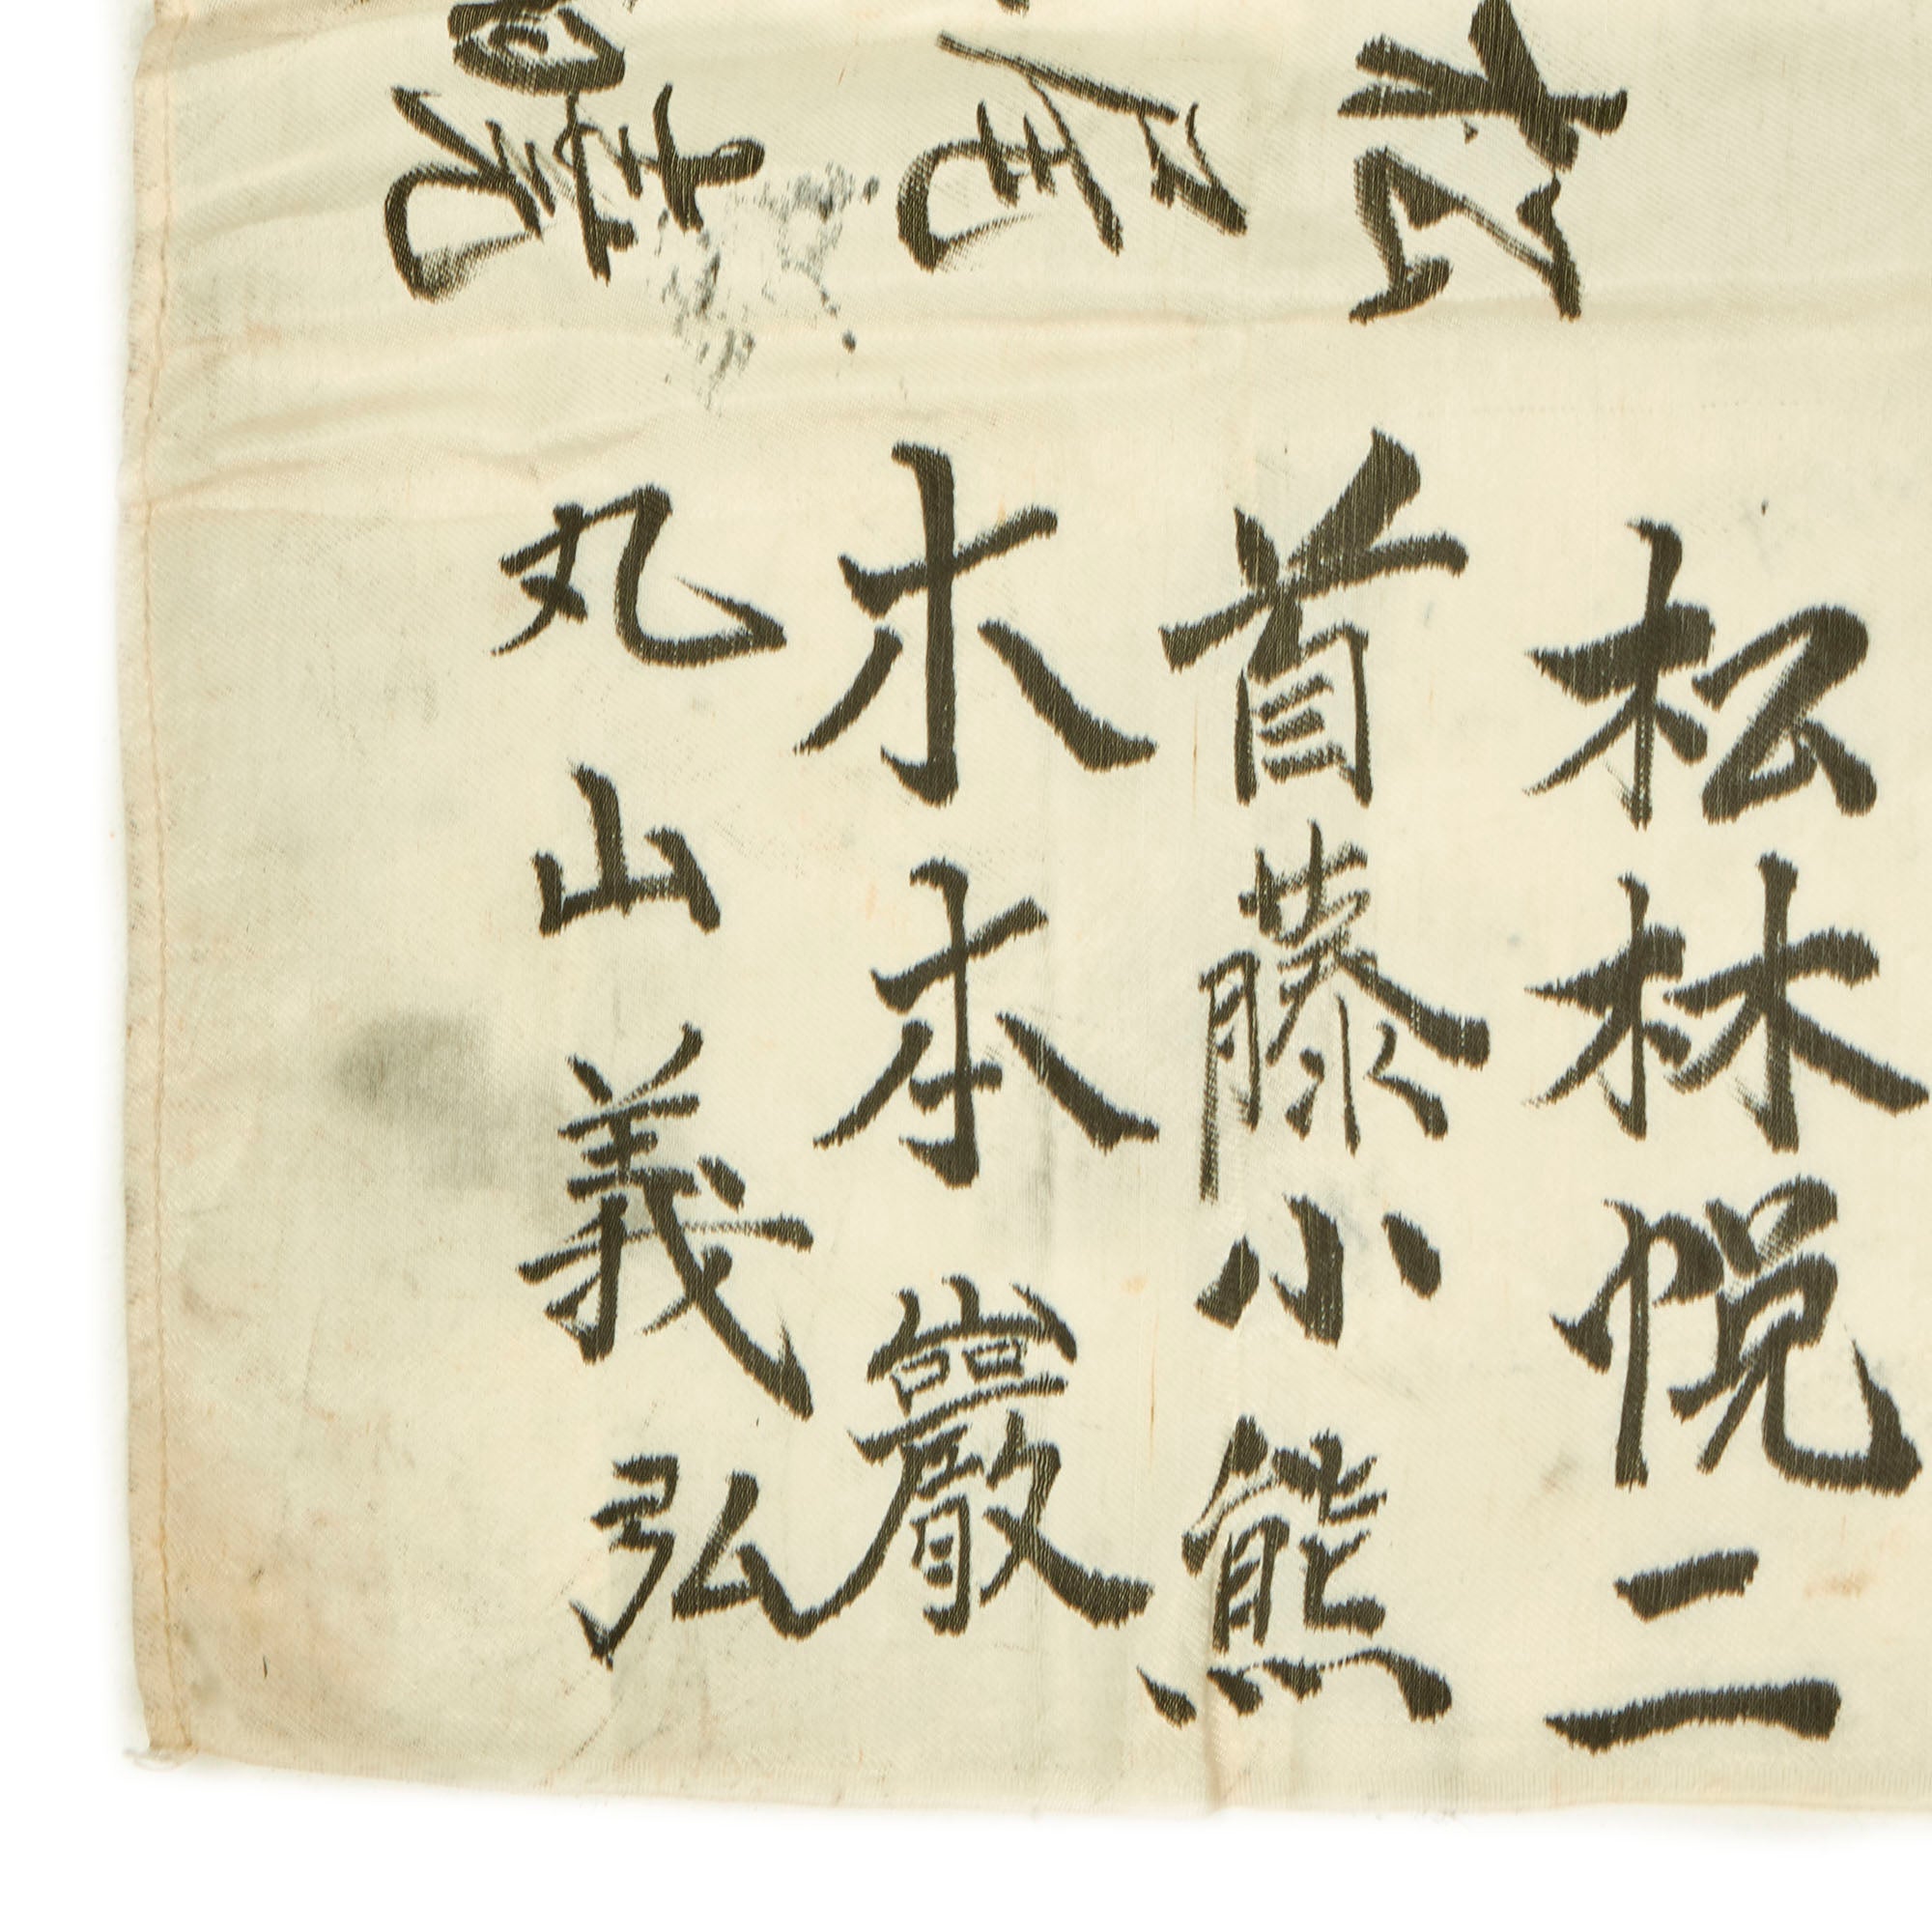 松林悦二
首藤小熊
木本巖
丸山義弘